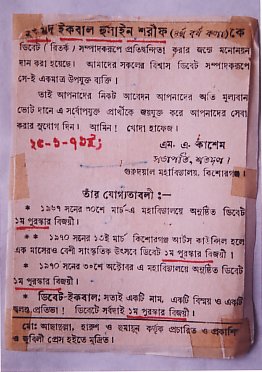 ইকবাল হুসাইন শরীফ (৪র্থ বর্ষ কলা) কে
ডিবেট / বিতর্ক / সম্পাদকরূপে প্রতিদ্বন্দিতা করার জন্যে মনোনয়ন
দান করা হয়েছে। আমাদের সকলের বিশ্বাস ডিবেট সম্পাদকরূপে
সে-ই একমাত্র উপযুক্ত ব্যক্তি।
তাই আপনাদের নিকট আবেদন আপনাদের অতি মূল্যবান
ভোট দানে এ সর্বোপযুক্ত প্রার্থীকে জয়যুক্ত করে আপনাদের সেবা
করার সুযোগ দিন। আমিন! খোদা হাফেজ।
এম. এ. কাশেম
সভাপতি,
গুরুদয়াল মহাবিদ্যালয়, কিশোরগঞ্জ।
তাঁর যোগ্যতাবলী :—
* ১৯৬৭ সনের ৩০শে মার্চ-এ মহাবিদ্যালয়ে অনুষ্ঠিত ডিবেট
১ম পুরস্কার বিজয়ী।
* * ১৯৭০ সনের ১৩ই মার্চ কিশোরগঞ্জ আর্টস কাউন্সিল হলে
এক মাসেরও বেশী সাংস্কৃতিক উৎসবে ডিবেট ১ম পুরস্কার বিজয়ী।
* ১৯৭০ সনের ৩০শে অক্টোবর এ মহাবিদ্যালয়ে অনুষ্ঠিত ডিবেট
১ম পুরস্কার বিজয়ী।
* ডিবেট-ইকবাল; সত্যই একটি নাম, একটি বিস্ময় ও একটি
প্রতিভা! ডিবেটে সর্বদাই ১ম পুরস্কার বিজয়ী।
মোঃ আছাদুল্লা, হারুণ ও হুমায়ুন কর্তৃক প্রচারিত ও প্রকাশি
ও জুবিলী প্রেস হইতে মুদ্রিত।